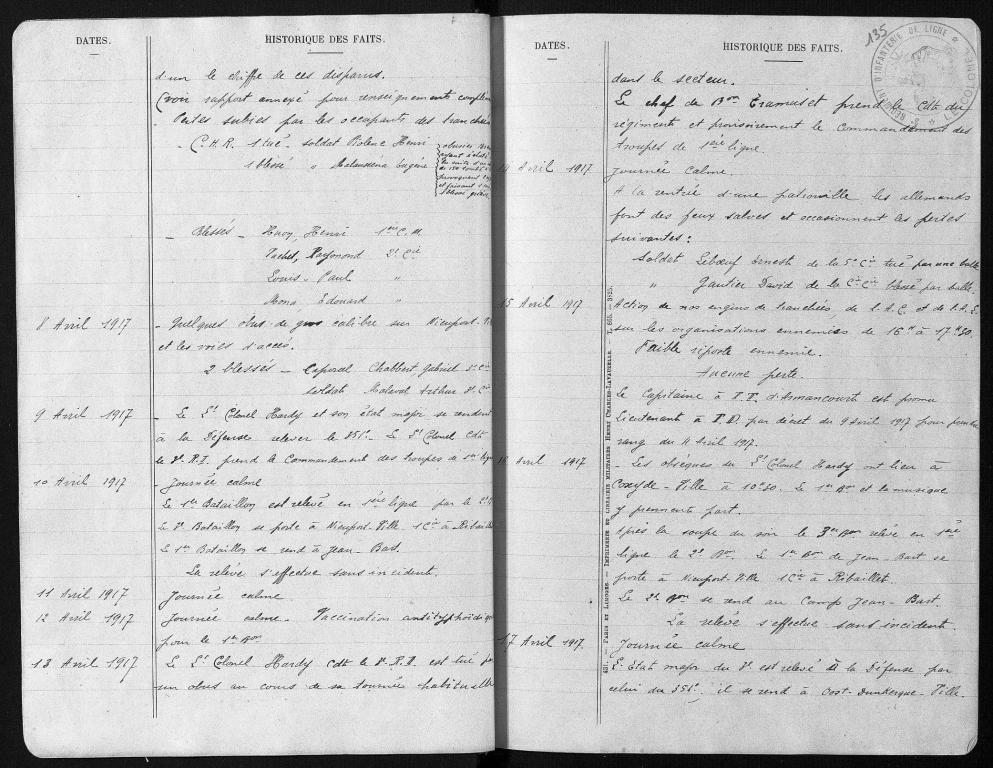 DATES.
HISTORIQUE DES FAITS.
d'un le chiffre de ces disparus.
(voir rapport annexé pour renseignements complém
Pertes subies par les occupants des tranchées
- C.H.R. 1 tué - soldat Violenc Henri
1 blessé " Malausséna Eugène
- Blessés - Huoy, Henri 1ère C.M
Pachet, Raymond 2e Cie
Louis, Paul "
Mong Edouard "
8 Avril 1917
- Quelques obus de gros calibre sur Nieuport-Vi
et les voies d'accès.
2 blessés - Caporal Chabbert, Gabriel
Soldat Malaval Arthur
9 Avril 1917
- Le Lt Colonel Hardy et son état major se rendent
à la Défense relever le 351e. Le Lt Colonel Cdt
le 8e R.I. prend le Commandement des troupes de 1ère ligne
10 Avril 1917
- Journée calme
Le 1er Bataillon est relevé en 1ère ligne par le 2e
Le 3e Bataillon se porte à Nieuport-Ville 1 Cie à Ribaillet
Le 1er Bataillon se rend à Jean-Bart.
La relève s'effectue sans incident.
11 Avril 1917
Journée calme
12 Avril 1917
Journée calme - Vaccination antityphoïdique
pour le 1er Bon
13 Avril 1917
- Le Lt Colonel Hardy cdt le 8e R.I. est tué par
un obus au cours de sa tournée habituelle
135
DATES.
HISTORIQUE DES FAITS.
RÉGIMENT D'INFANTERIE DE LIGNE
LE COLONEL
dans le secteur.
Le chef de Bon Eramuset prend le Cdt du
régiment et provisoirement le commandement des
troupes de 1ère ligne.
14 Avril 1917
Journée Calme.
A la rentrée d'une patrouille les allemands
font des feux salves et occasionnent les pertes
suivantes :
Soldat Leboeuf Ernest de la 5e Cie tué par une balle
" Gautier David de la Cie blessé par balle.
15 Avril 1917
Action de nos engins de tranchées, de l'A.C. et de l'A.L.
sur les organisations ennemies de 16h à 17h30.
Faible riposte ennemie.
Aucune perte.
Le Capitaine à T.T. d'Armancourt est promu
Lieutenant à T.D. par décret du 9 Avril 1917 pour prendre
rang du 11 Avril 1917.
16 Avril 1917
- Les obsèques du Lt Colonel Hardy ont lieu à
Coxyde-Ville à 10h30. Le 1er Bon et la musique
y prennent part.
Après la soupe du soir le 3me Bon relève en 1ère
ligne le 2e Bon. Le 1er Bon de Jean-Bart se
porte à Nieuport-Ville 1 Cie à Ribaillet.
Le 2e Bon se rend au Camp Jean-Bart.
La relève s'effectue sans incident.
17 Avril 1917.
Journée calme
L'Etat major du 8e est relevé à la Défense par
celui du 351e. il se rend à Oost-Dunkerque-Ville.
431. - PARIS ET LIMOGES. - IMPRIMERIE ET LIBRAIRIE MILITAIRES HENRI CHARLES-LAVAUZELLE.